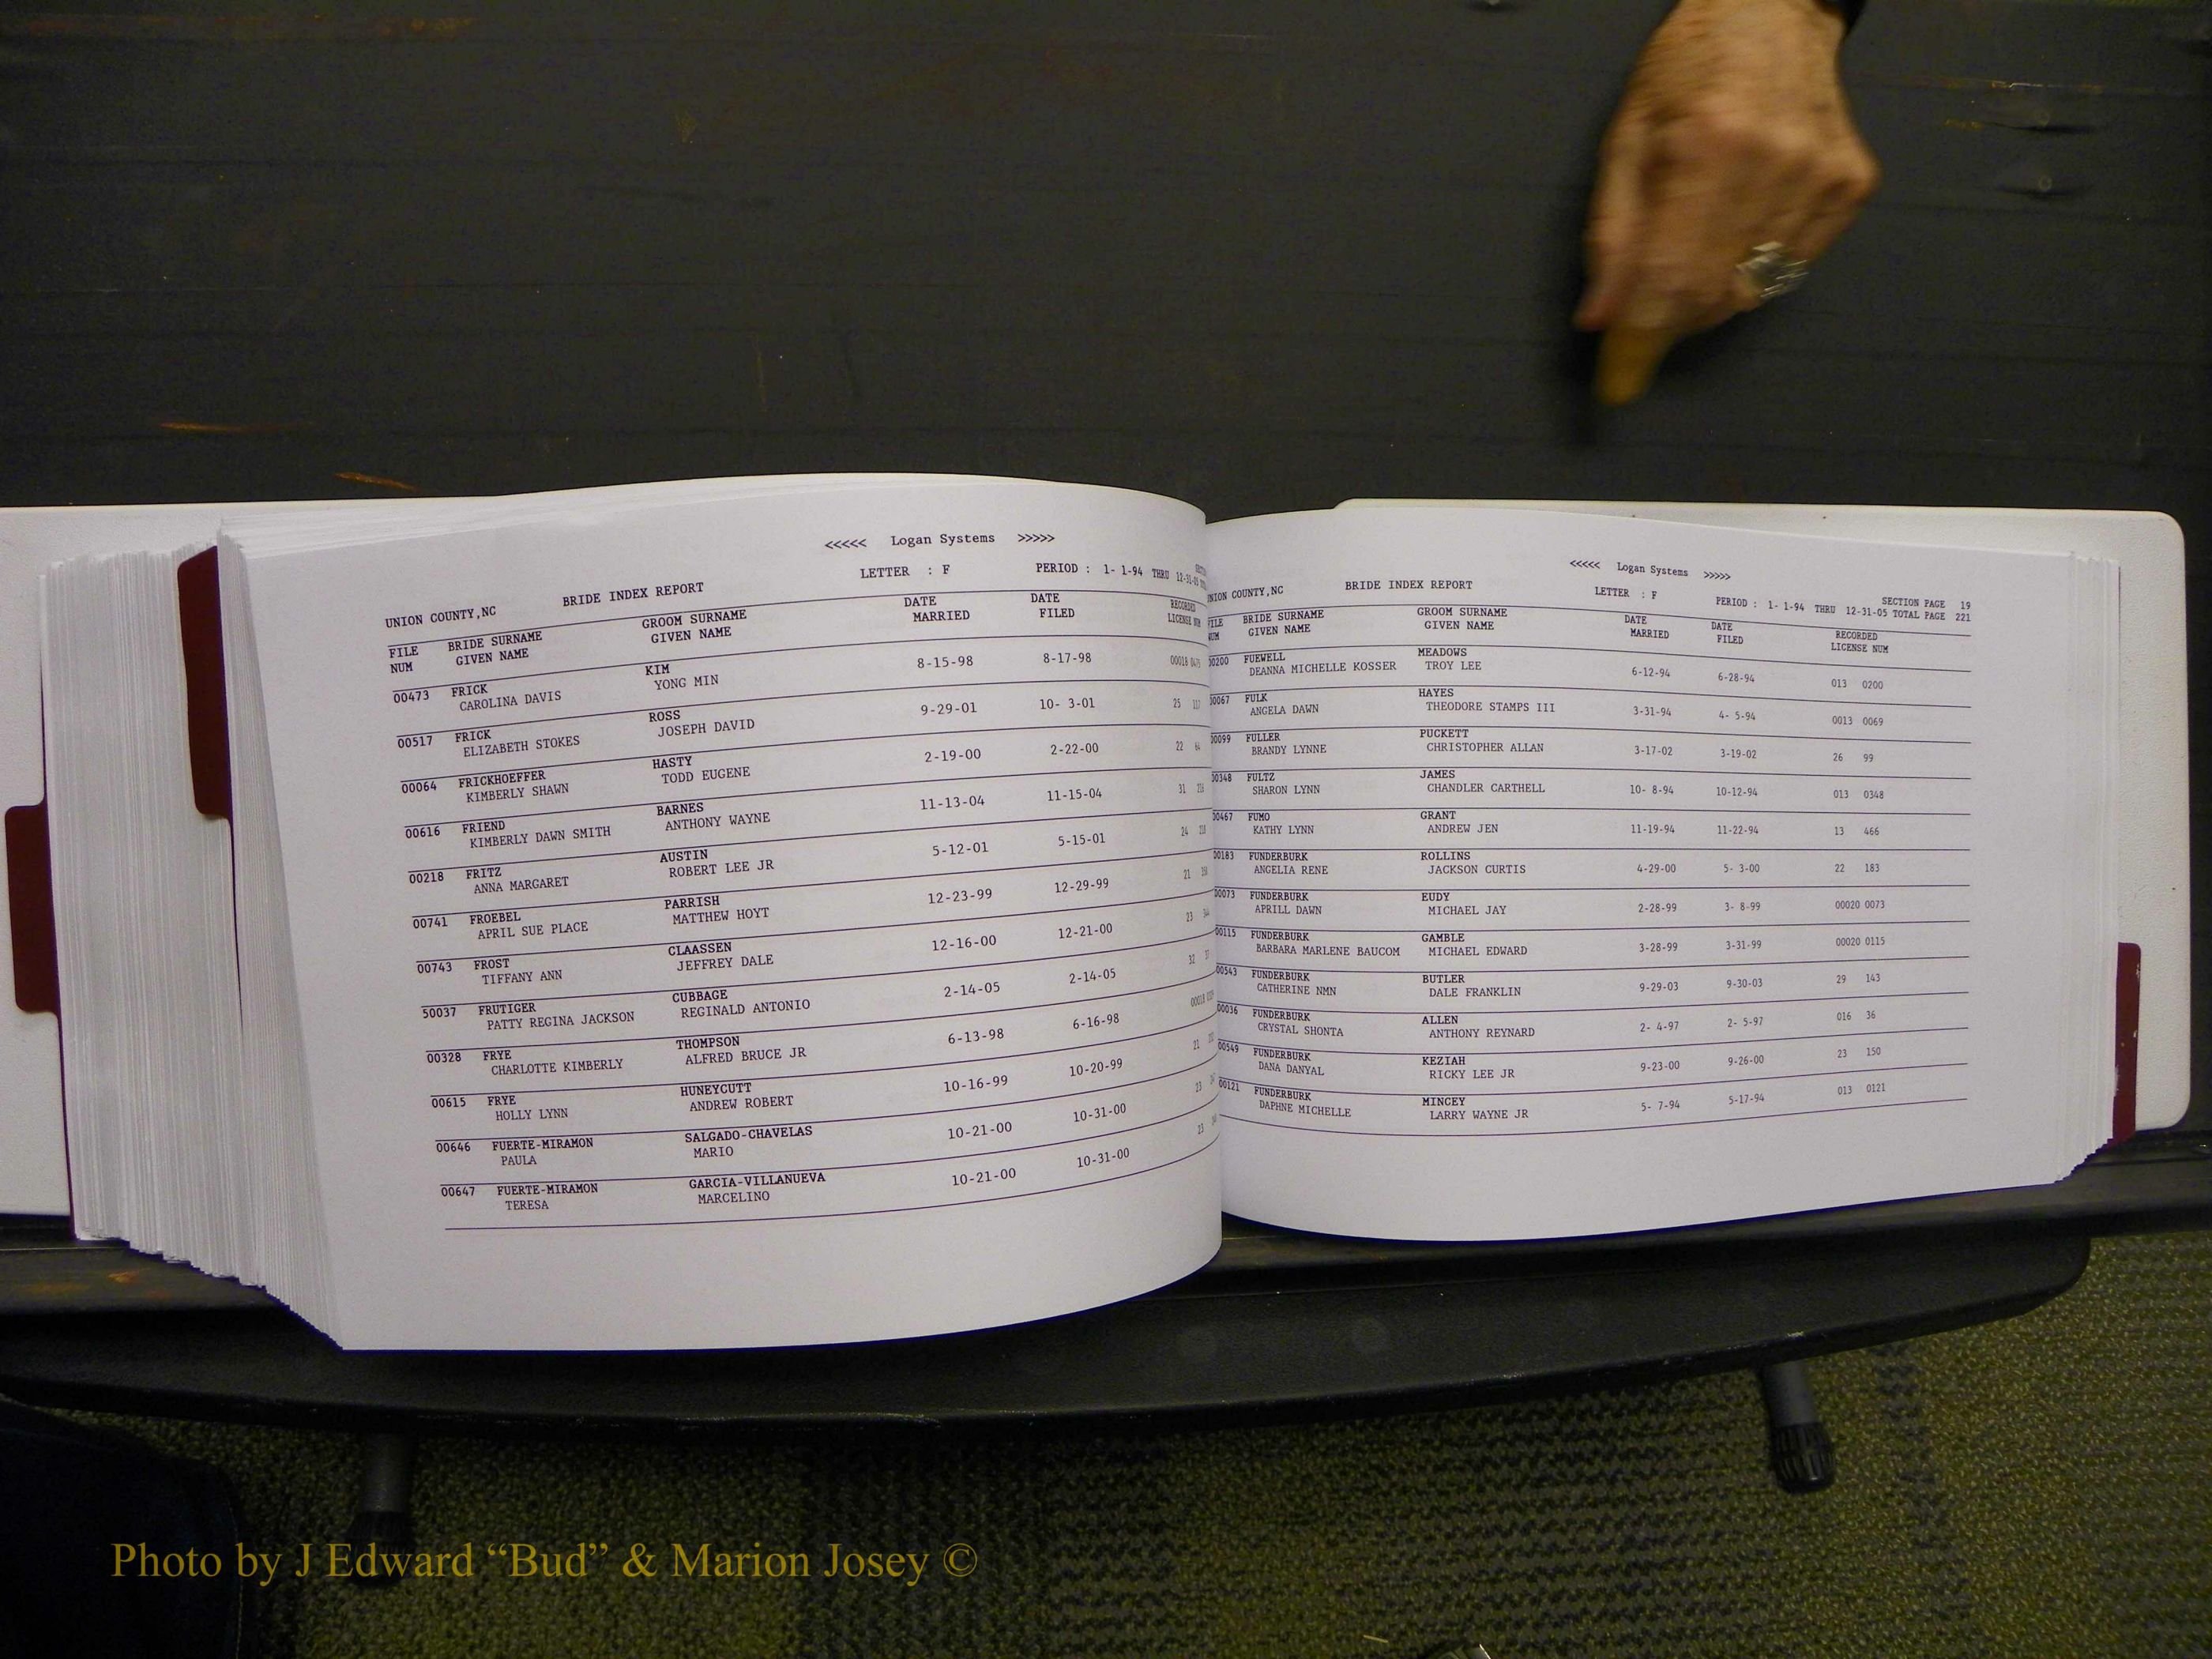 <<<<< Logan Systems >>>>>
UNION COUNTY,NC BRIDE INDEX REPORT LETTER : F PERIOD : 1- 1-94 THRU 12-31-05
FILE BRIDE SURNAME GROOM SURNAME DATE DATE RECORDED
NUM GIVEN NAME GIVEN NAME MARRIED FILED LICENSE NUM
00473 FRICK KIM 8-15-98 8-17-98 00018
CAROLINA DAVIS YONG MIN
00517 FRICK ROSS 9-29-01 10- 3-01 25
ELIZABETH STOKES JOSEPH DAVID
00064 FRICKHOEFFER HASTY 2-19-00 2-22-00 22
KIMBERLY SHAWN TODD EUGENE
00616 FRIEND BARNES 11-13-04 11-15-04 31
KIMBERLY DAWN SMITH ANTHONY WAYNE
00218 FRITZ AUSTIN 5-12-01 5-15-01 24
ANNA MARGARET ROBERT LEE JR
00741 FROEBEL PARRISH 12-23-99 12-29-99 21
APRIL SUE PLACE MATTHEW HOYT
00743 FROST CLAASSEN 12-16-00 12-21-00 23
TIFFANY ANN JEFFREY DALE
50037 FRUTIGER CUBBAGE 2-14-05 2-14-05 32
PATTY REGINA JACKSON REGINALD ANTONIO
00328 FRYE THOMPSON 6-13-98 6-16-98
CHARLOTTE KIMBERLY ALFRED BRUCE JR
00615 FRYE HUNEYCUTT 10-16-99 10-20-99 21
HOLLY LYNN ANDREW ROBERT
00646 FUERTE-MIRAMON SALGADO-CHAVELAS 10-21-00 10-31-00 23
PAULA MARIO
00647 FUERTE-MIRAMON GARCIA-VILLANUEVA 10-21-00 10-31-00 23
TERESA MARCELINO
<<<<< Logan Systems >>>>>
SECTION PAGE 19
UNION COUNTY,NC BRIDE INDEX REPORT LETTER : F PERIOD : 1- 1-94 THRU 12-31-05 TOTAL PAGE 221
FILE BRIDE SURNAME GROOM SURNAME DATE DATE RECORDED
NUM GIVEN NAME GIVEN NAME MARRIED FILED LICENSE NUM
00200 FUEWELL MEADOWS 6-12-94 6-28-94 013 0200
DEANNA MICHELLE KOSSER TROY LEE
00067 FULK HAYES 3-31-94 4- 5-94 0013 0069
ANGELA DAWN THEODORE STAMPS III
00099 FULLER PUCKETT 3-17-02 3-19-02 26 99
BRANDY LYNNE CHRISTOPHER ALLAN
00348 FULTZ JAMES 10- 8-94 10-12-94 013 0348
SHARON LYNN CHANDLER CARTHELL
00467 FUMO GRANT 11-19-94 11-22-94 13 466
KATHY LYNN ANDREW JEN
00183 FUNDERBURK ROLLINS 4-29-00 5- 3-00 22 183
ANGELIA RENE JACKSON CURTIS
00073 FUNDERBURK EUDY 2-28-99 3- 8-99 00020 0073
APRILL DAWN MICHAEL JAY
00115 FUNDERBURK GAMBLE 3-28-99 3-31-99 00020 0115
BARBARA MARLENE BAUCOM MICHAEL EDWARD
00543 FUNDERBURK BUTLER 9-29-03 9-30-03 29 143
CATHERINE NMN DALE FRANKLIN
00036 FUNDERBURK ALLEN 2- 4-97 2- 5-97 016 36
CRYSTAL SHONTA ANTHONY REYNARD
00549 FUNDERBURK KEZIAH 9-23-00 9-26-00 23 150
DANA DANYAL RICKY LEE JR
00121 FUNDERBURK MINCEY 5- 7-94 5-17-94 013 0121
DAPHNE MICHELLE LARRY WAYNE JR
Photo by J Edward “Bud” & Marion Josey ©